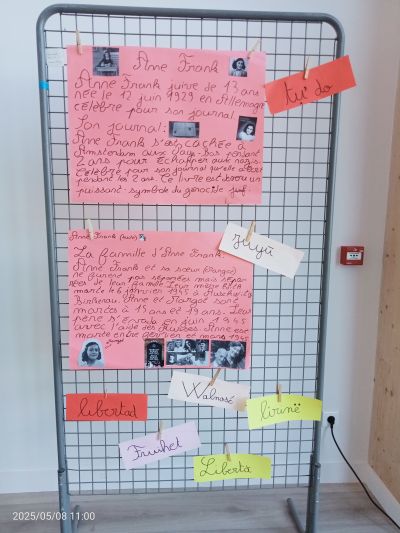 Anne Frank
Anne Frank juive de 13 ans
née le 12 juin 1929 en Allemagne
célèbre pour son journal.
Son journal:
Anne Frank s'est cachée a
Amsterdam aux Pays-Bas pendant
2 ans pour échapper aux nazis
célèbre pour son journal qu'elle a
pendant les 2 ans Ce livre est devenu un
puissant symbole du génocide juif.
tự do
Anne Frank (suite)
La famille d'Anne Frank:
Anne Frank et sa sœur (Margot)
ne furent pas séparées mais sépa-
rées de leur famille. Leur mère Edith
morte le 6 janvier 1945 à Auschwitz
Birkenau. Anne et Margot sont
mortes à 15 ans et 19 ans. Leur
père en juin 1945
avec l'aide des Russes. Anne est
morte entre février et mars 1945
Jiyū
Wolność
libertad
lirinë
Freiheit
Liberta
2025/05/08 11:00